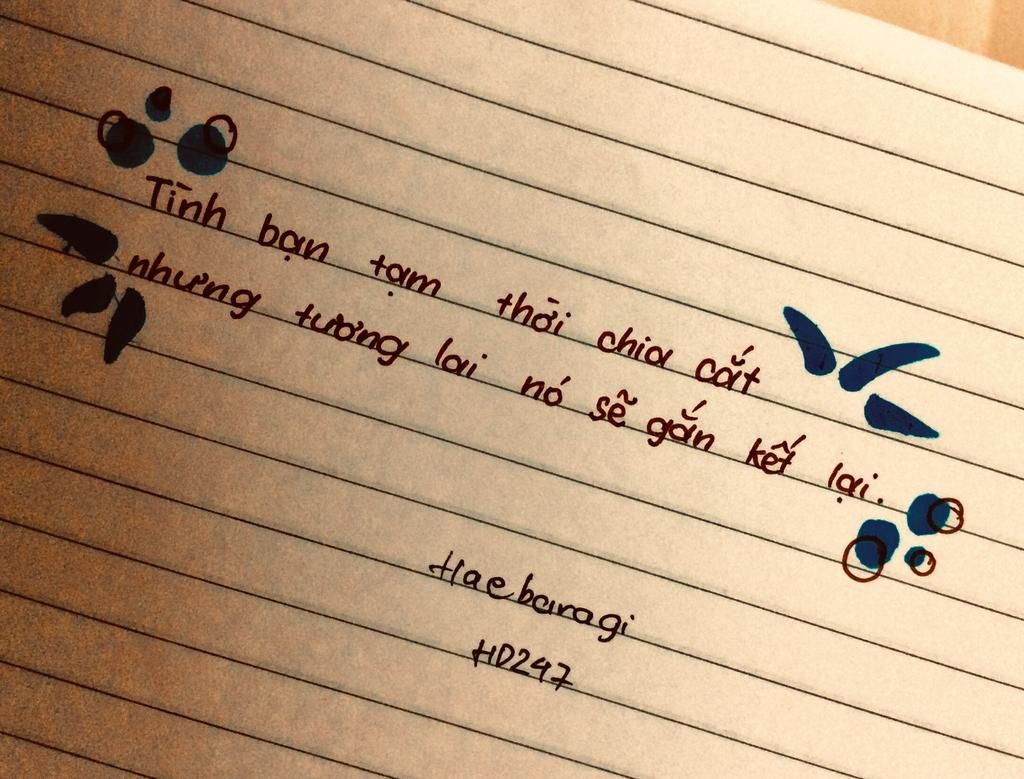 Tình bạn tạm thời chia cắt
nhưng tương lai nó sẽ gắn kết lại.
Haebaragi
HD247